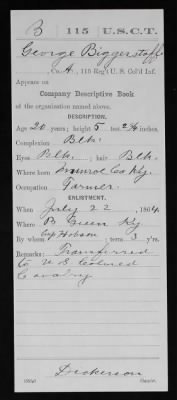 B | 115 | U.S.C.T.
George Biggerstaff
, Co. A, 115 Reg't U. S. Col'd Inf.
Appears on
Company Descriptive Book
of the organization named above.
DESCRIPTION.
Age 20 years; height 5 feet 2¾ inches.
Complexion Blk.
Eyes Blk. ; hair Blk.
Where born Munroe Co Ky.
Occupation Farmer.
ENLISTMENT.
When July 22 , 1864.
Where B Green Ky.
By whom Cap Hobson ; term 3 y'rs.
Remarks: Transferred
to U S Colored
Cavalry
Dickerson
Copyist.